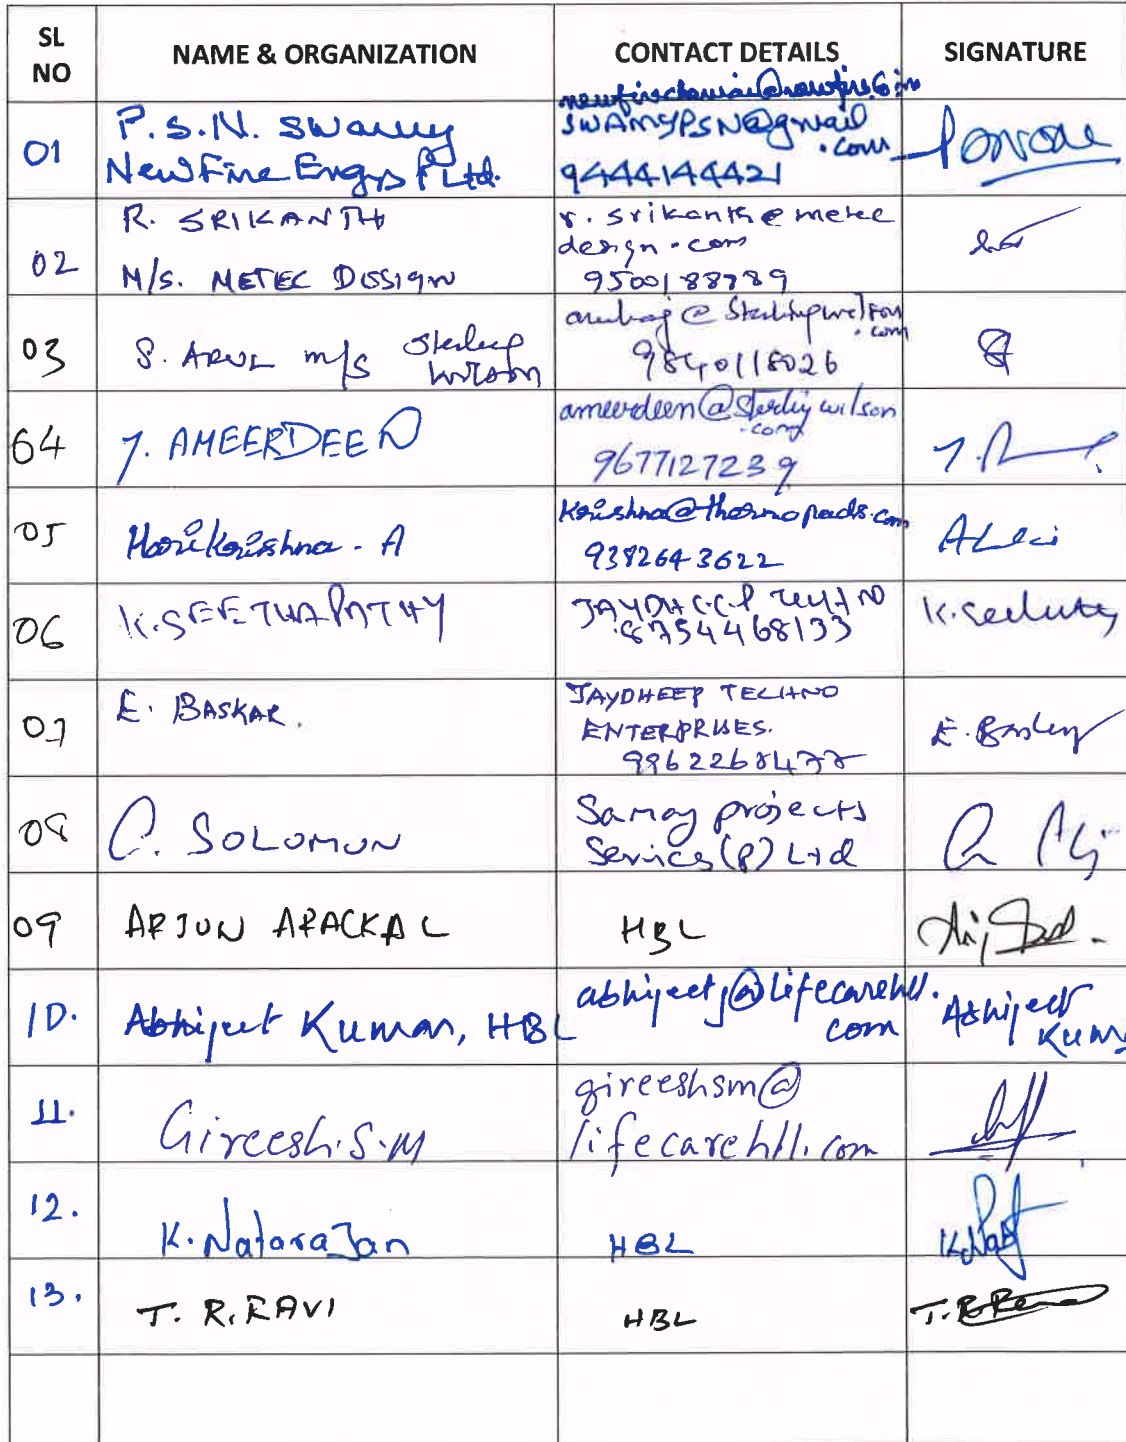 SL NO NAME & ORGANIZATION CONTACT DETAILS SIGNATURE
01 P.S.N. Swamy
NewFire Engrs P Ltd.
SWAMYPSN@gmail
.com
9444144421
02 R. SRIKANTH
M/S. METEC DESSIGN
r.srikanth@metec
design.com
9500188789
03 S. ARUL M/S Sterling
Wilson
@Sterlingwilson
.com
9840118026
64 Y. AMEERDEEN
ameerdeen@Sterling wilson
.com
9677127239
05 Harikrishna. A
Krishna@thermopads.com
9382643622
06 K. SEETHAPATHY
8754468133
K. Seethapathy
07 E. BASKAR.
JAYDHEEP TECHNO
ENTERPRISES.
9962268477
E. Baskar
08 C. SOLOMON
projects
Services (P) Ltd
09 ARJUN ARACKAL HBL
10. Abhijeet Kumar, HBL
abhijeetj@lifecarehll.
com
Abhijeet
Kumar
11. Gireesh.S.M
gireeshsm@
lifecarehll.com
12. K. Natarajan HBL
13. T. R. RAVI HBL